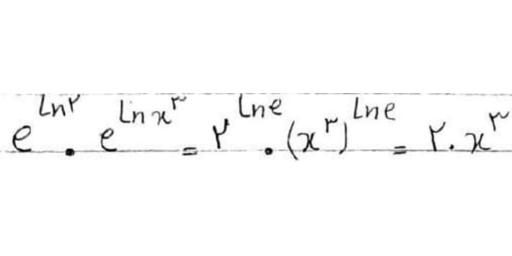 e^{Ln۲} . e^{Ln x^۳} = ۲^{Lne} . (x^۳)^{Lne} = ۲ . x^۳